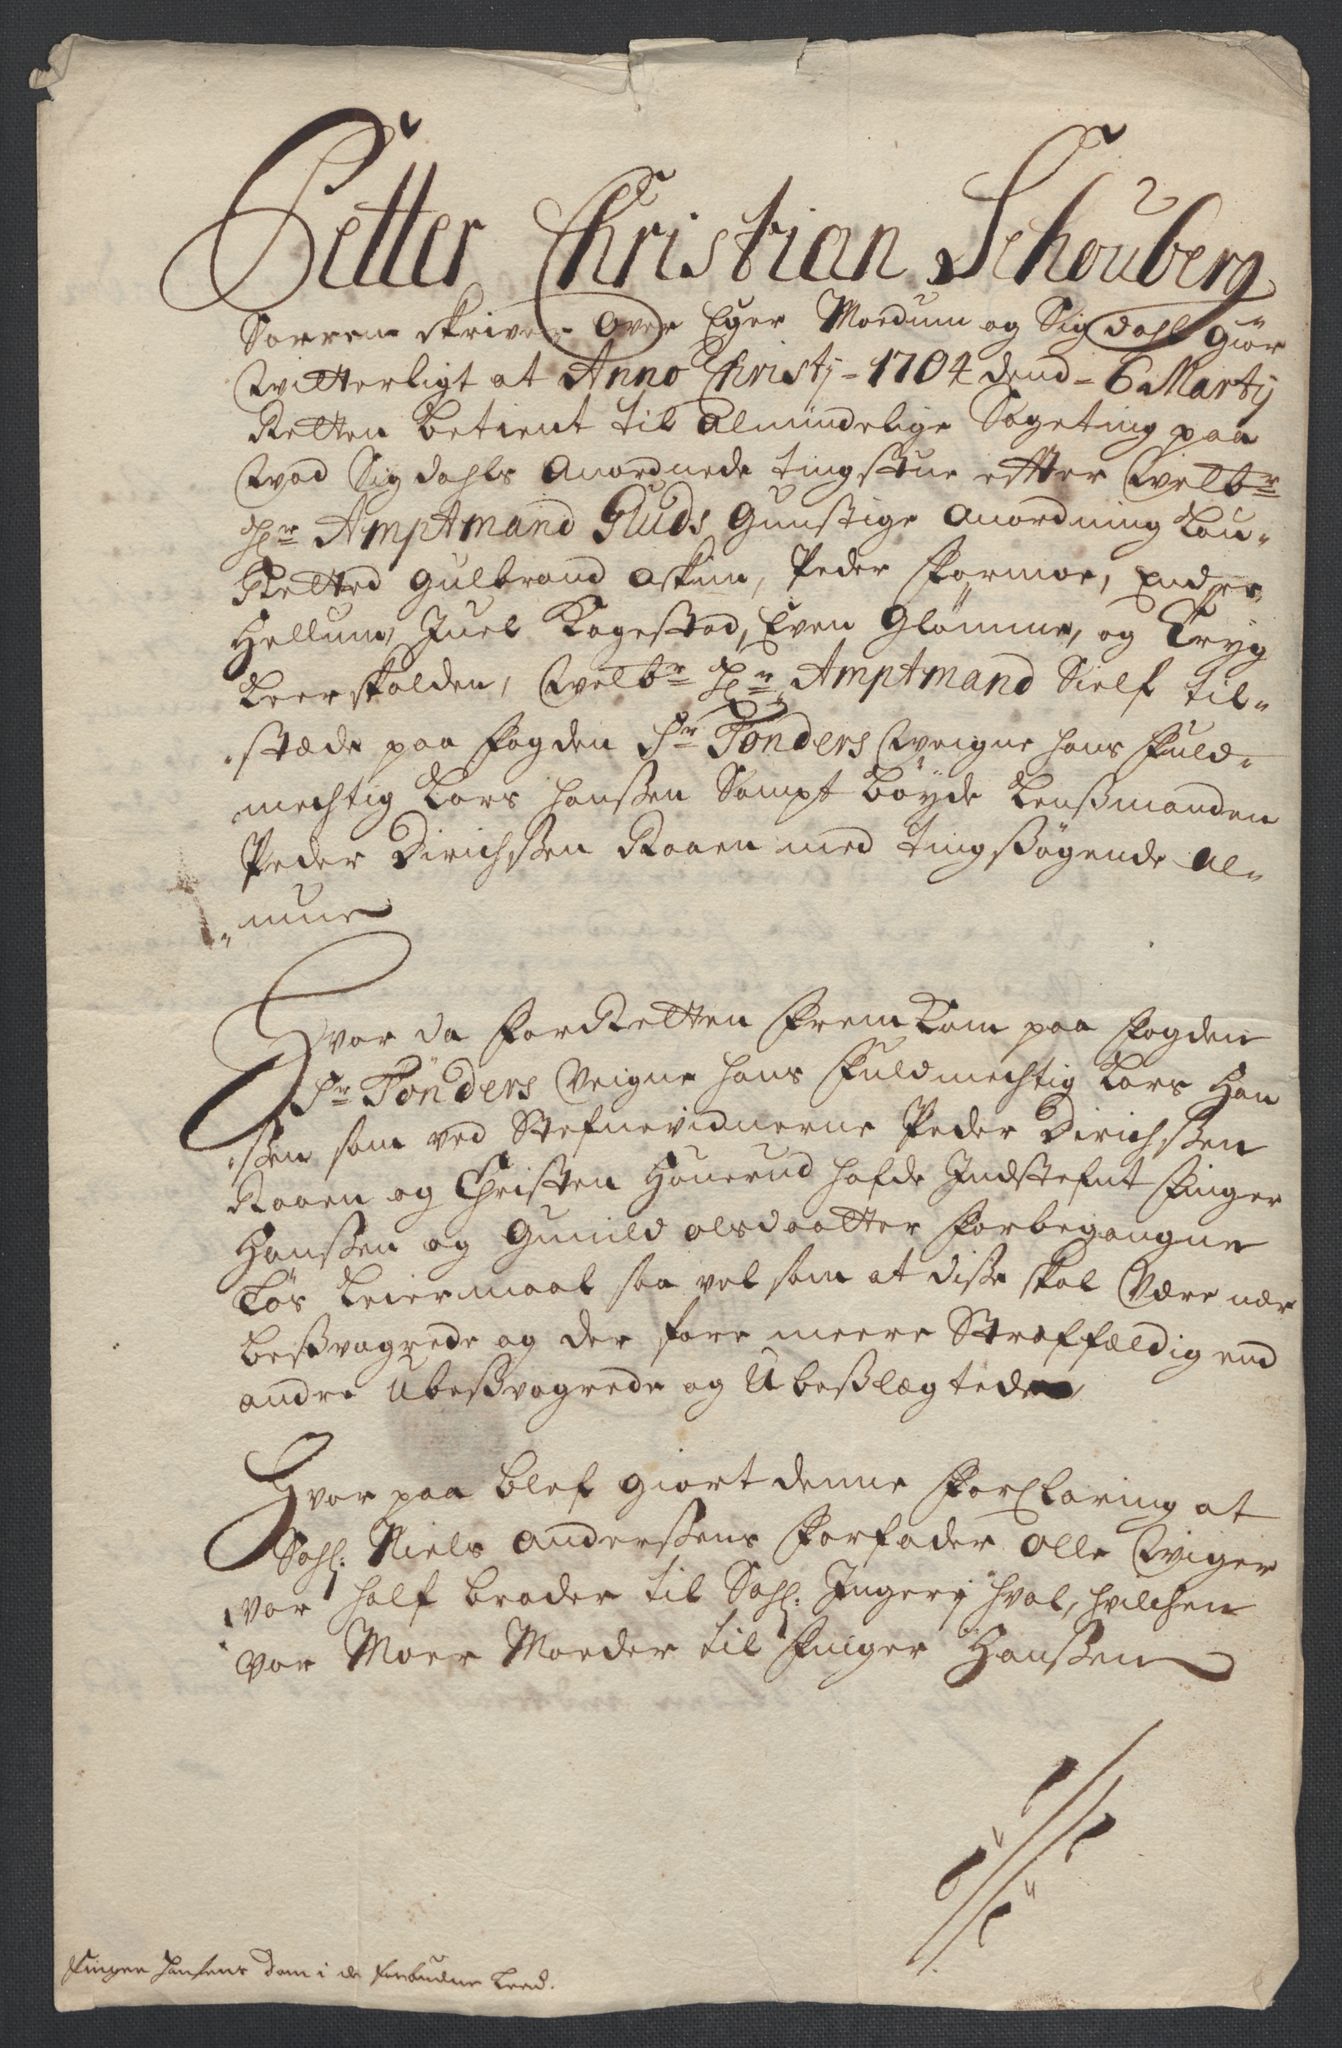 Petter Christian Schouberg
Sorrenskriver Over Eger Modum og Sigdahl giør
Witterligt at Anno Christj - 1704 dend - 6 Martij
Retten betient til Almindelige Sageting paa
Wad Sigdahls Anordnede tingstue etter Welbr
Hr AmptMand Gluds Gunstige Anordning Lau-
Retted Gulbrand Askim, Peder Formoe, Endre
Hellum, Juel Kagestad, Even Glømme, og Tryg
Leerskalden, Welbr Hr AmptMand Sielf til-
stæde paa fogden Sr Tønders Weigne hans fuld-
mechtig Lars Hanssen Sampt bøyde Lenssmanden
Peder Dirichssen Raaen med tingssøgende Al-
mue
Hvor da for Retten fremkom paa fogden
Sr Tønders Veigne hans fuldmechtig Lars Han
ssen som ved Stefnevidnerne Peder Dirichssen
Raaen og Christen Houerud hafde Indstefnt Finger
Hanssen og Gunild olsdaatter forbegangne
Løs Leiermaal saa vel som at disse skal Være nær
bessvagrede og der fore meere Straffældig end
andre Ubessvagrede og Ubesslægtede
Hvor paa blef giort denne forClaring at
Sahl: Niels Anderssens forfader Olle Wiger
var half brader til Sahl: Ingerj hval, hvilchen
var Moer Moeder til Finger Hanssen
Finger Hansens Dom i de forbudne Leed.